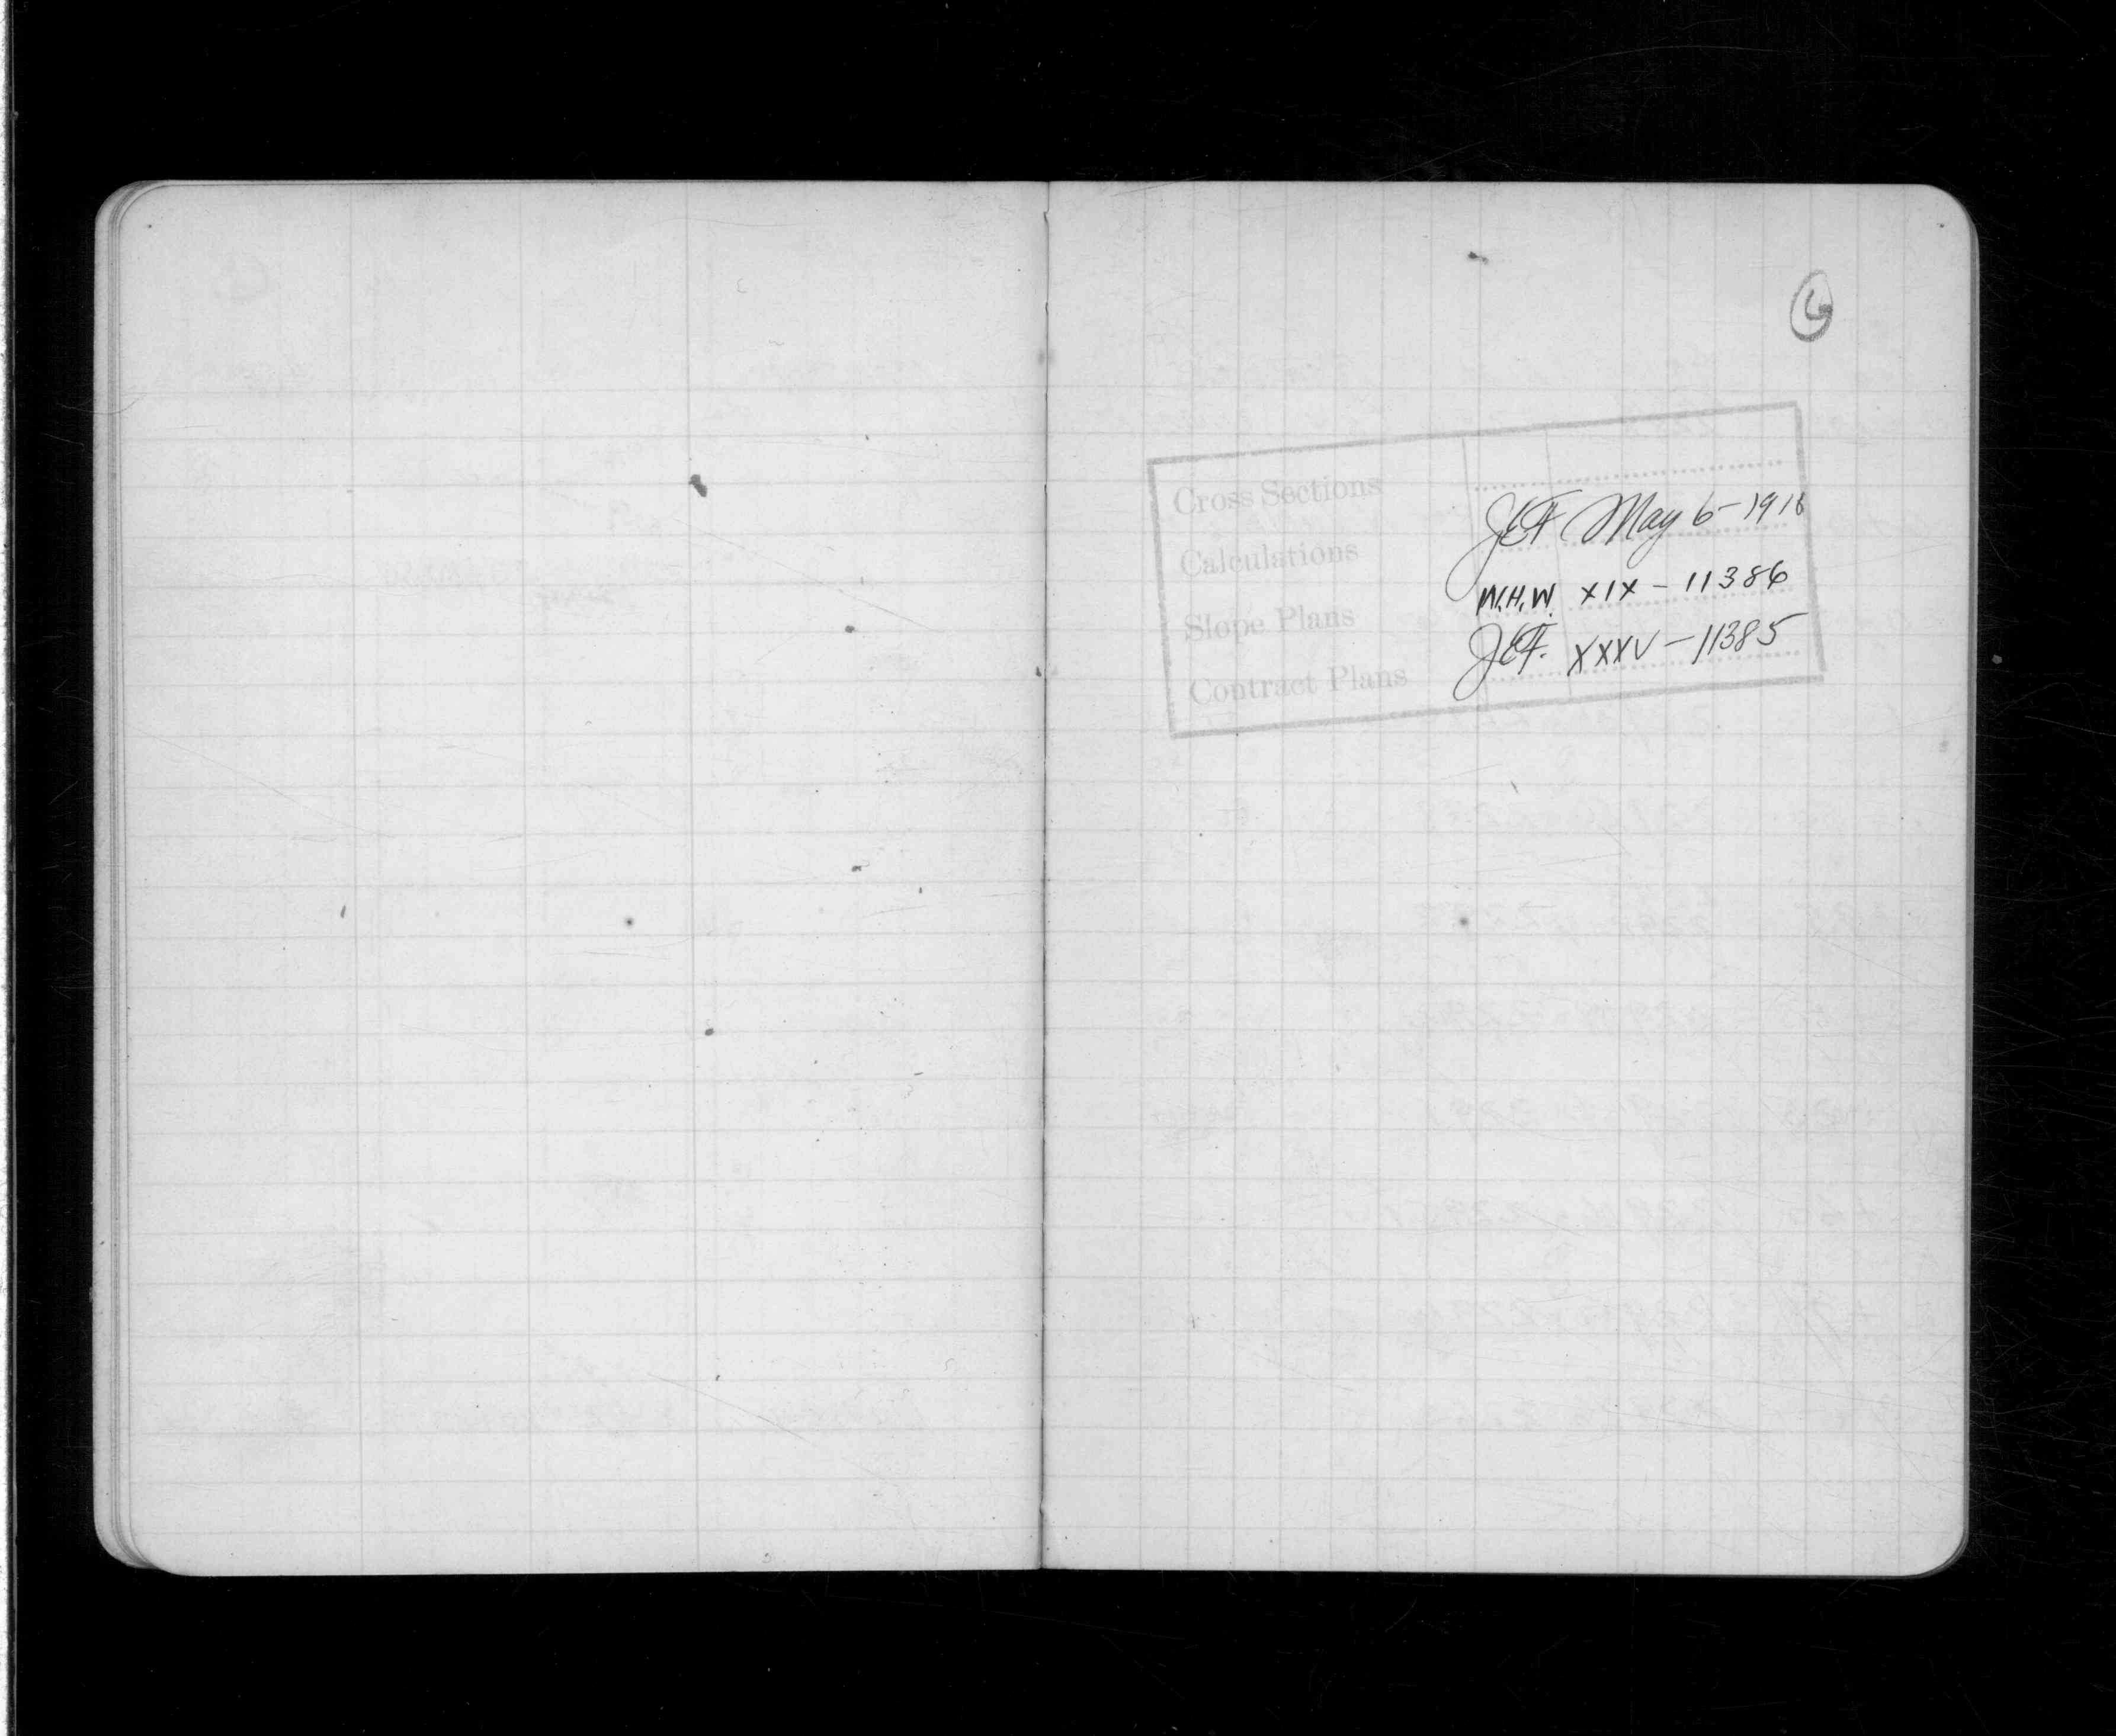 6
Cross Sections
Calculations JEF May 6-1918
Slope Plans W.H.W. XIX - 11386
Contract Plans JEF. XXXV - 11385